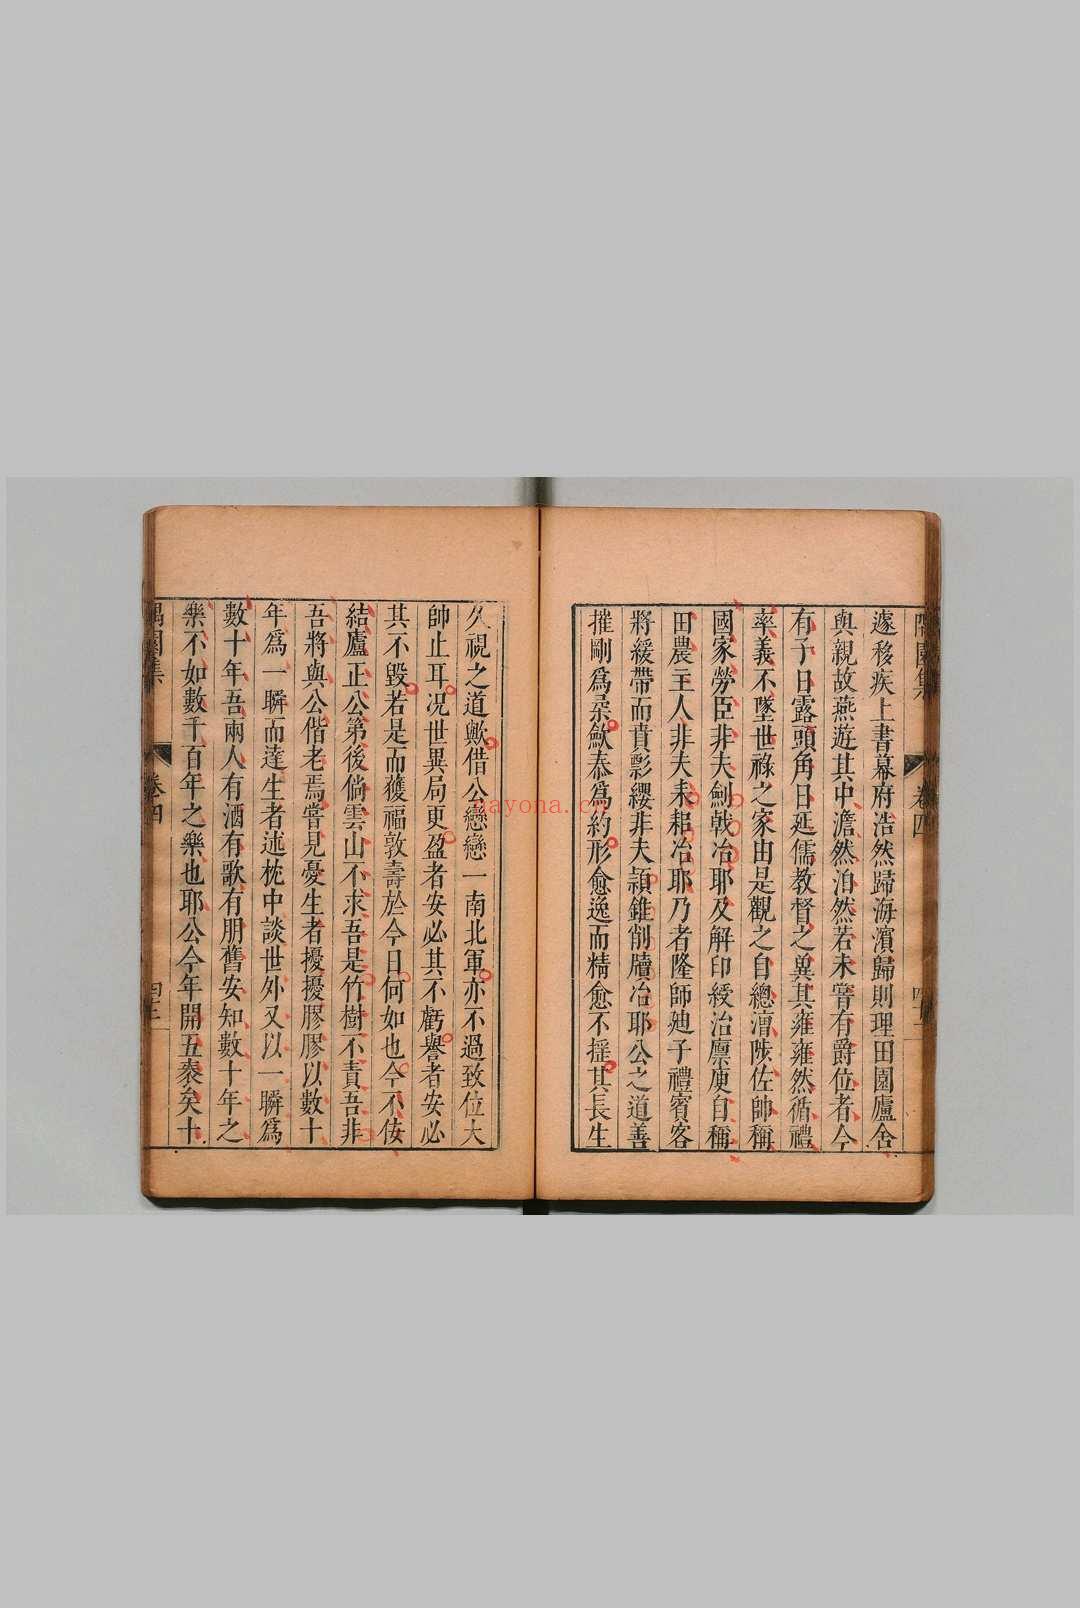 遂移疾上書幕府浩然歸海濱歸則理田園廬舍
與親故燕遊其中澹然泊然若未嘗有爵位者今
有子日露頭角日延儒教督之異其雍雍然循禮
率義不墜世祿之家由是觀之自總漕陟佐帥稱
國家勞臣非夫劍戟冶耶及解印綬治廪庾自稱
田農主人非夫耒耜冶耶乃者隆師廸子禮賓客
將緩帶而賁影纓非夫頴錐削牘冶耶公之道善
摧剛爲柔歛泰爲約形愈逸而精愈不搖其長生
卷四
久視之道歟借公戀戀一南北軍亦不過致位大
帥止耳况世異局更盈者安必其不虧譽者安必
其不毀若是而獲福敦壽於今日何如也今不佞
結廬正公第後倘雲山不求吾是竹樹不責吾非
吾將與公偕老焉嘗見憂生者擾擾膠膠以數十
年爲一瞬而達生者述枕中談世外又以一瞬爲
數十年吾兩人有酒有歌有朋舊安知數十年之
樂不如數千百年之樂也耶公今年開五袠矣十
卷四
nayona.cn